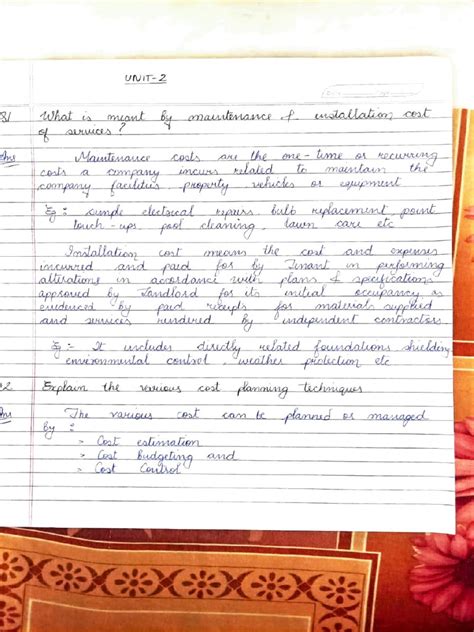 UNIT-2
Q1 What is meant by maintenance & installation cost
of services?
Ans Maintenance costs are the one-time or recurring
costs a company incurs related to maintain the
company facilities, property, vehicles or equipment
Eg:- simple electrical repairs, bulb replacement, point
touch-ups, pool cleaning, lawn care etc
Installation cost means the cost and expenses
incurred and paid for by Tenant in performing
alterations in accordance with plans & specifications
approved by Landlord for its initial occupancy as
evidenced by paid receipts for materials supplied
and services rendered by independent contractors
Eg:- It includes directly related foundations shielding
environmental control, weather protection etc
Explain the various cost planning techniques
Ans The various cost can be planned or managed
by :
> Cost estimation
> Cost budgeting and
> Cost control